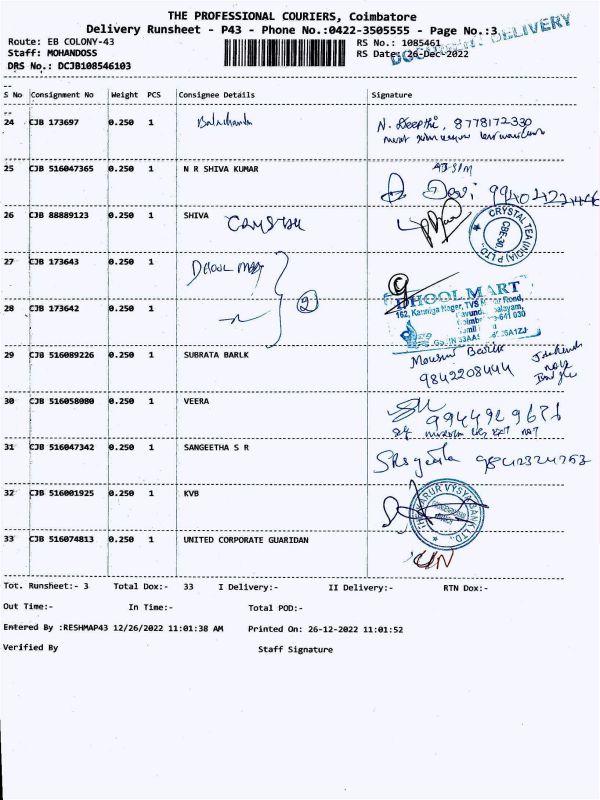 THE PROFESSIONAL COURIERS, Coimbatore
Delivery Runsheet - P43 - Phone No.:0422-3505555 - Page No.:3
DELIVERY
Route: EB COLONY-43 RS No.: 1085461
Staff: MOHANDOSS RS Date: 26-Dec-2022
DRS No.: DCJB108546103
S No Consignment No Weight PCS Consignee Details Signature
24 CJB 173697 0.250 1 N. Deepthi, 8778172330
25 CJB 516047365 0.250 1 N R SHIVA KUMAR Devi
26 CJB 88889123 0.250 1 SHIVA CRYSTAL
CRYSTAL TEA (INDIA) P LTD. CBE-30
27 CJB 173643 0.250 1 DHOOL MART
2
DHOOL MART
162, Kanniga Nagar, TVS Nagar Road,
641 030
28 CJB 173642 0.250 1
29 CJB 516089226 0.250 1 SUBRATA BARLK
9842208444
30 CJB 516058080 0.250 1 VEERA
31 CJB 516047342 0.250 1 SANGEETHA S R
32 CJB 516001925 0.250 1 KVB
33 CJB 516074813 0.250 1 UNITED CORPORATE GUARIDAN
Tot. Runsheet:- 3 Total Dox:- 33 I Delivery:- II Delivery:- RTN Dox:-
Out Time:- In Time:- Total POD:-
Entered By :RESHMAP43 12/26/2022 11:01:38 AM Printed On: 26-12-2022 11:01:52
Verified By Staff Signature